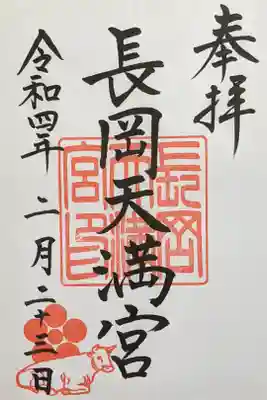 奉拝
長岡天満宮
長岡
天満
宮印
令和四年 二月二十三日